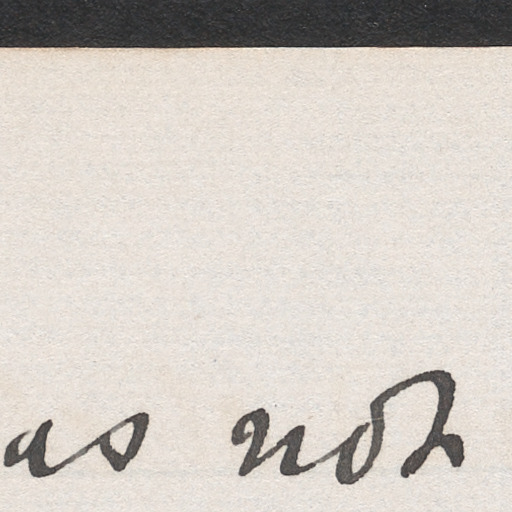 as not